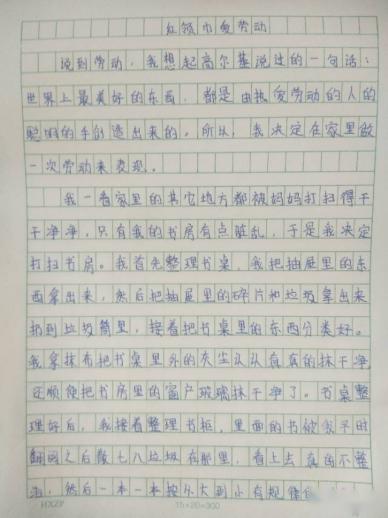 红领巾爱劳动
说到劳动，我想起高尔基说过的一句话：
世界上最美好的东西，都是由热爱劳动的人的
聪明的手创造出来的。所以，我决定在家里做
一次劳动来表现。
我一看家里的其它地方都被妈妈打扫得干
干净净，只有我的书房有点脏乱，于是我决定
打扫书房。我首先整理书桌，我把抽屉里的东
西拿出来，然后把抽屉里的碎片和垃圾拿出来
扔到垃圾筒里，接着把书桌里的东西分类好。
我拿抹布把书桌里外的灰尘认认真真的抹干净，
还顺便把书房里的窗户玻璃抹干净了。书桌整
理好后，我接着整理书柜，里面的书被我平时
翻阅之后散七八垃圾在那里，看上去真的不整
洁，然后一本一本按从大到小有规律
HXZP 15×20=300